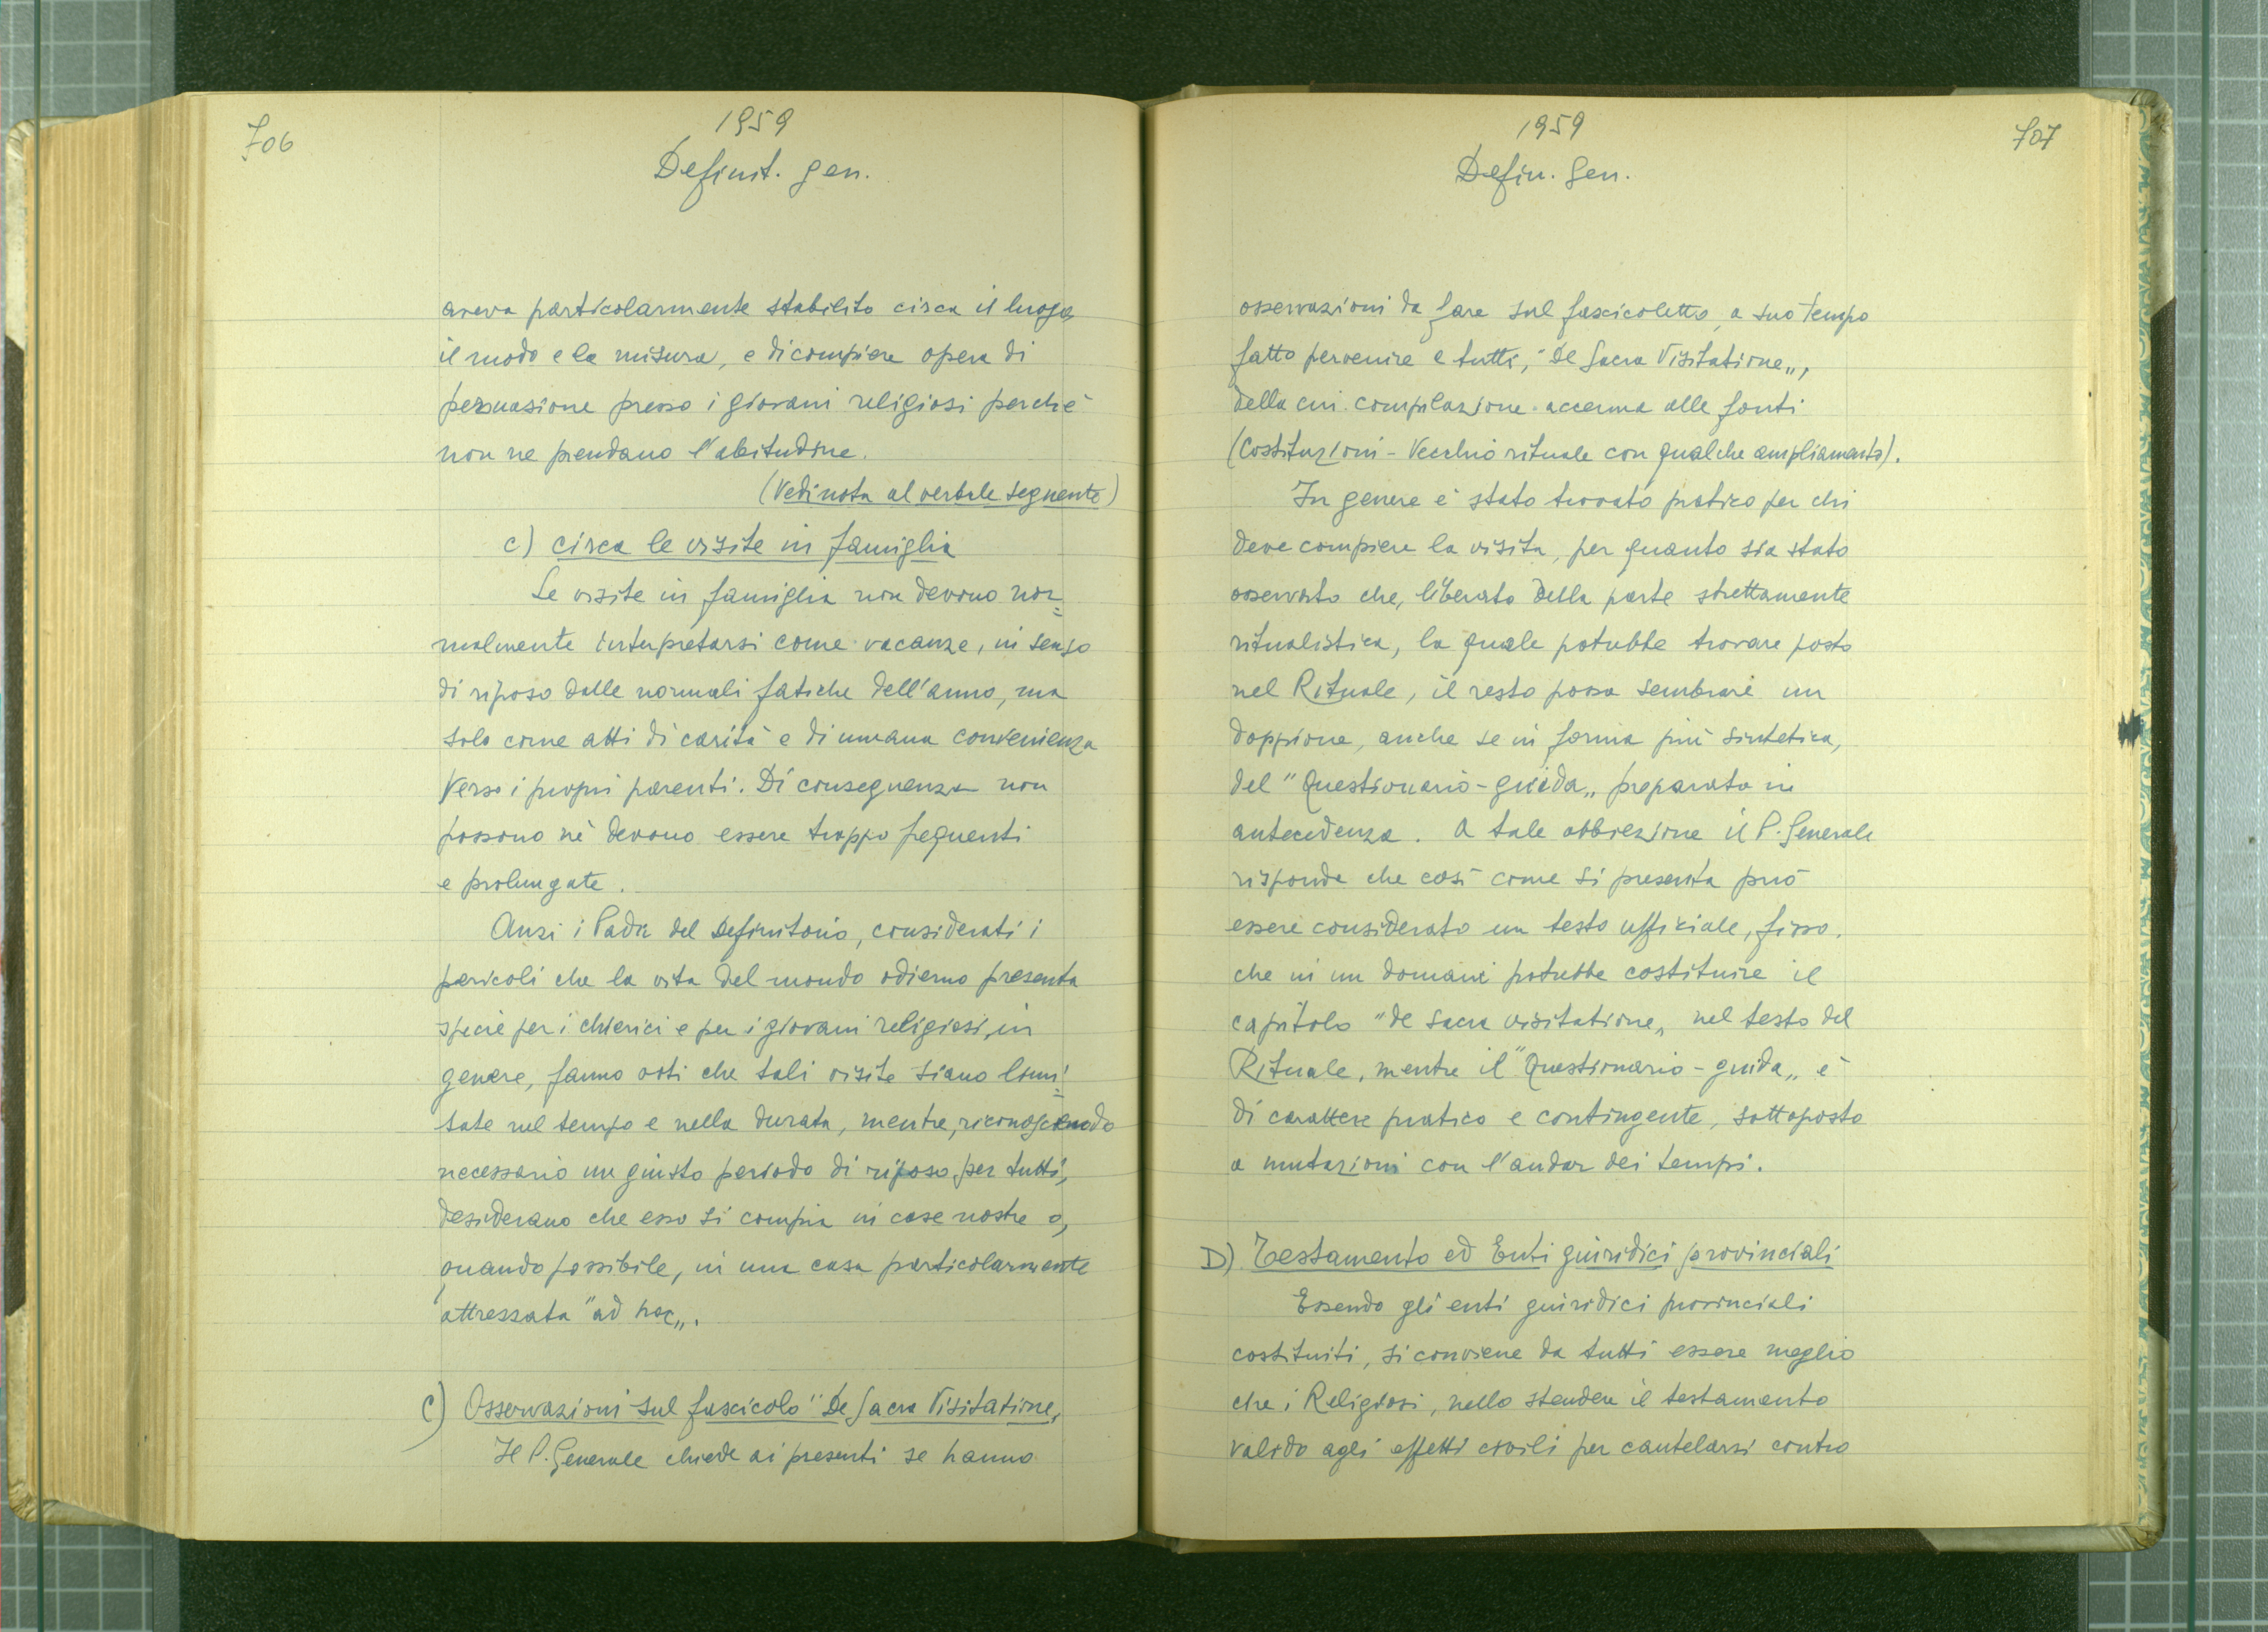 706
1959
Definit. gen.
aveva particolarmente stabilito circa il luogo
il modo e la misura, e di compiere opera di
persuasione presso i giovani religiosi perchè
non ne prendano l'abitudine.
(Vedi nota al verbale seguente)
c) circa le visite in famiglia
Le visite in famiglia non devono nor=
malmente interpretarsi come vacanze, in senso
di riposo dalle normali fatiche dell'anno, ma
solo come atti di carità e di umana convenienza
verso i propri parenti. Di conseguenza non
possono nè devono essere troppo frequenti
e prolungate.
Anzi i Padri del Definitorio, considerati i
pericoli che la vita del mondo odierno presenta
specie per i chierici e per i giovani religiosi, in
genere, fanno voti che tali visite siano limi=
tate nel tempo e nella durata, mentre, riconoscendo
necessario un giusto periodo di riposo per tutti,
desiderano che esso si compia in case nostre o,
quando possibile, in una casa particolarmente
attrezzata "ad hoc„.
C) Osservazioni sul fascicolo "De Sacra Visitatione„
Il P. Generale chiede ai presenti se hanno
1959
Defin. Gen.
707
osservazioni da fare sul fascicoletto, a suo tempo
fatto pervenire a tutti, "De Sacra Visitatione„,
della cui compilazione accenna alle fonti
(Costituzioni - Vecchio rituale con qualche ampliamento).
In genere è stato trovato pratico per chi
deve compiere la visita, per quanto sia stato
osservato che, liberato della parte strettamente
ritualistica, la quale potrebbe trovare posto
nel Rituale, il resto possa sembrare un
doppione, anche se in forma più sintetica,
del "Questionario-guida„ preparato in
antecedenza. A tale obbiezione il P. Generale
risponde che così come si presenta può
essere considerato un testo ufficiale, fisso.
che in un domani potrebbe costituire il
capitolo "de sacra visitatione„ nel testo del
Rituale, mentre il "Questionario-guida„ è
di carattere pratico e contingente, sottoposto
a mutazioni con l'andar dei tempi.
D) Testamento ed Enti giuridici provinciali
Essendo gli enti giuridici provinciali
costituiti, si conviene da tutti essere meglio
che i Religiosi, nello stendere il testamento
valido agli effetti civili per cautelarsi contro